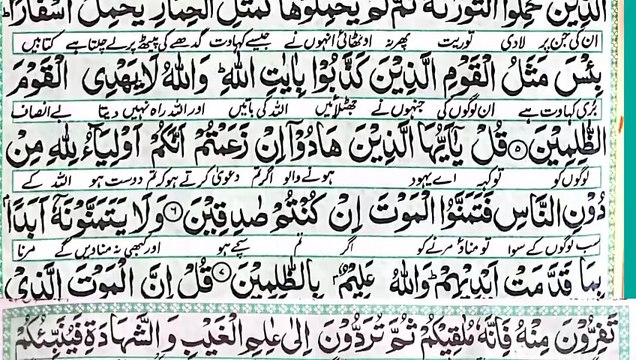 الَّذِيْنَ حُمِّلُوا التَّوْرٰىةَ ثُمَّ لَمْ يَحْمِلُوْهَا كَمَثَلِ الْحِمَارِ يَحْمِلُ اَسْفَارًا ؕ
ان کی جن پر لادی توریت پھر نہ اوٹھائی انہوں نے جیسے کہاوت گدھے کی پیٹھ پر لے چلتا ہے کتابیں
بِئْسَ مَثَلُ الْقَوْمِ الَّذِيْنَ كَذَّبُوْا بِاٰيٰتِ اللّٰهِ ؕ وَاللّٰهُ لَا يَهْدِى الْقَوْمَ
بری کہاوت ہے ان لوگوں کی جنہوں نے جھٹلائیں اللہ کی باتیں اور اللہ راہ نہیں دیتا بے انصاف
الظّٰلِمِيْنَ ۵ قُلْ يٰۤاَيُّهَا الَّذِيْنَ هَادُوْۤا اِنْ زَعَمْتُمْ اَنَّكُمْ اَوْلِيَآءُ لِلّٰهِ مِنْ
لوگوں کو تو کہہ اے یہود ہونے والو اگر تم دعویٰ کرتے ہو کہ تم دوست ہو اللہ کے
دُوْنِ النَّاسِ فَتَمَنَّوُا الْمَوْتَ اِنْ كُنْتُمْ صٰدِقِيْنَ ۶ وَلَا يَتَمَنَّوْنَهٗۤ اَبَدًۢا
سب لوگوں کے سوا تو مناؤ مرنے کو اگر تم سچے ہو اور کبھی نہ منادیں گے مرنا
بِمَا قَدَّمَتْ اَيْدِيْهِمْ ؕ وَاللّٰهُ عَلِيْمٌۢ بِالظّٰلِمِيْنَ ۷ قُلْ اِنَّ الْمَوْتَ الَّذِىْ
تَفِرُّوْنَ مِنْهُ فَاِنَّهٗ مُلٰقِيْكُمْ ثُمَّ تُرَدُّوْنَ اِلٰى عٰلِمِ الْغَيْبِ وَالشَّهَادَةِ فَيُنَبِّئُكُمْ